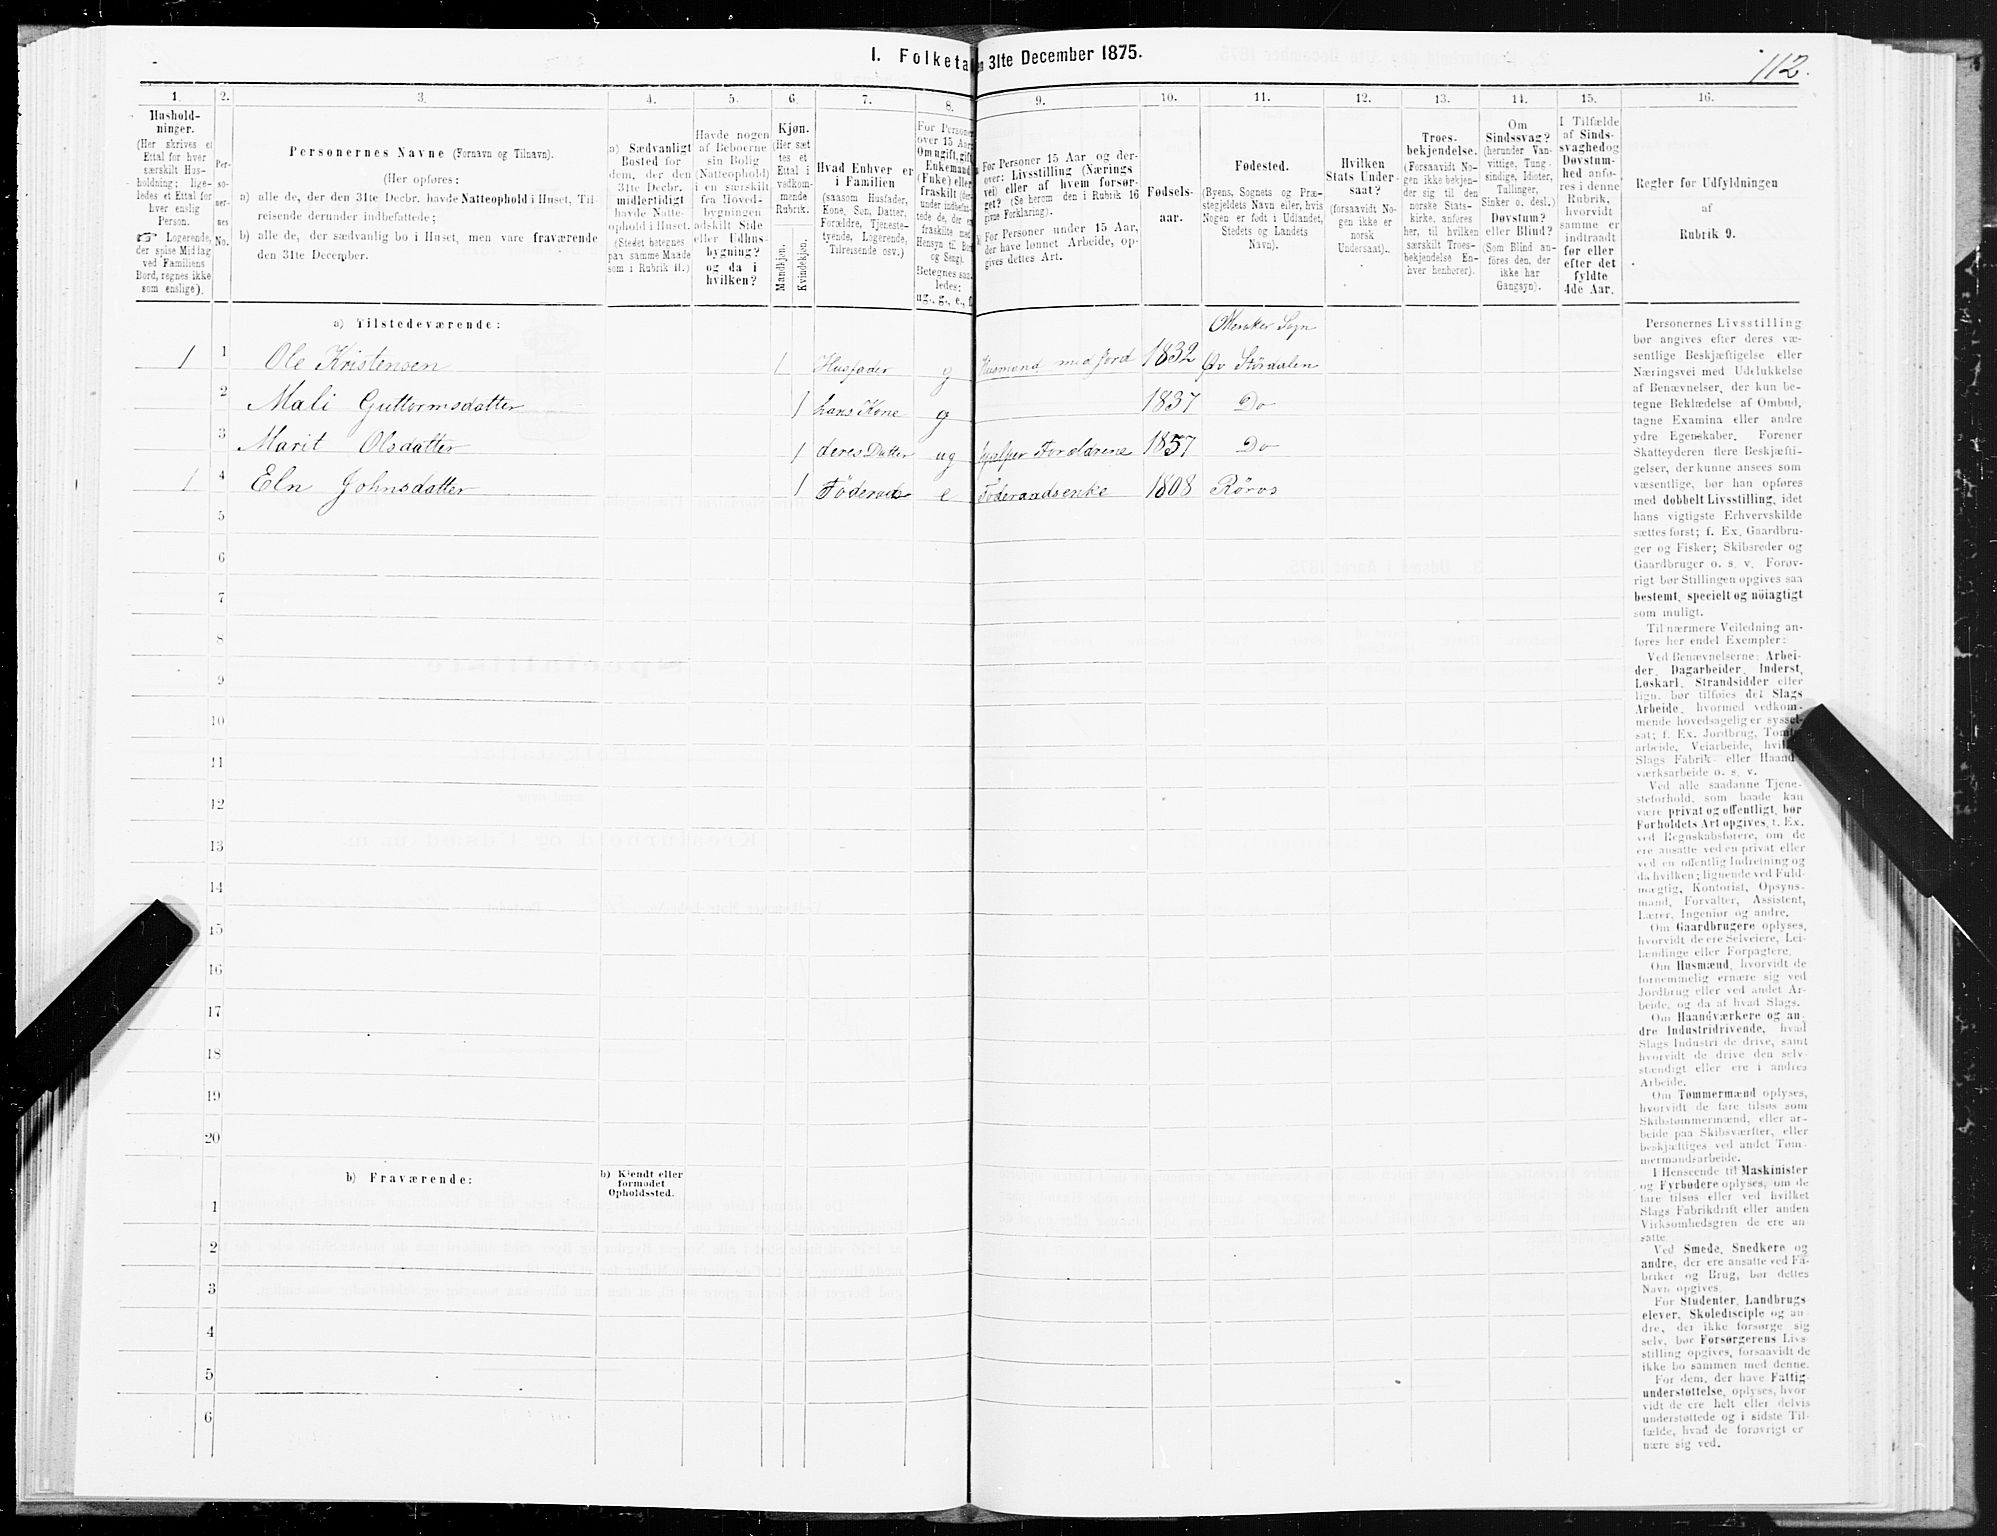 I. Folketa n 31te December 1875.
112.
1. 2. 3. 4. 5. 6. 7. 8. 9. 10. 11. 12. 13. 14. 15. 16.
Hushold-
ninger.
(Her skrives et
Ettal for hver
særskilt Hus-
holdning; lige-
ledes et Ettal for
hver enslig
Person.
☞ Logerende,
der spise Middag
ved Familiens
Bord, regnes ikke
som enslige).
Per-
so-
ner-
nes
No.
Personernes Navne (Fornavn og Tilnavn).
(Her opføres:
a) alle de, der den 31te Decbr. havde Natteophold i Huset, Til-
reisende derunder indbefattede;
b) alle de, der sædvanlig bo i Huset, men vare fraværende
den 31te December.
a) Sædvanligt
Bosted for
dem, der den
31te Decbr.
midlertidigt
havde Natte-
ophold i Huset.
(Stedet betegnes
paa samme Maade
som i Rubrik 11.)
Havde nogen
af Beboerne
sin Bolig
(Natteophold)
i en særskilt
fra Hoved-
bygningen
adskilt Side
eller Udhus-
bygning?
og da i
hvilken?
Kjøn.
(Her sæt
tes et
Ettal i
vedkom-
mende
Rubrik.
Mandkjøn.
Kvindekjøn.
Hvad Enhver er
i Familien
(saasom Husfader,
Kone, Søn, Datter,
Forældre, Tjeneste-
tyende, Logerende,
Tilreisende osv.)
For Personer
over 15 Aar:
Om ugift, gift,
Enkemand
(Enke) eller
fraskilt (der-
under indbefat-
tede de, der er
fraskilte med
Hensyn til Bord
og Seng).
Betegnes saa-
ledes:
ug., g., e., f.
For Personer 15 Aar og der-
over: Livsstilling (Nærings-
vei) eller af hvem forsør-
get? (Se herom den i Rubrik 16
givne Forklaring).
For Personer under 15 Aar,
der have lønnet Arbeide, op-
gives dettes Art.
Fødsels-
aar.
Fødested.
(Byens, Sognets og Præ-
stegjeldets Navn eller, hvis
Nogen er født i Udlandet,
Stedets og Landets
Navn).
Hvilken
Stats Under-
saat?
(forsaavidt No-
gen ikke er
norsk
Undersaat).
Troes-
bekjendelse.
(Forsaavidt No-
gen ikke bekjen-
der sig til den
norske Stats-
kirke, anføres
her, til hvilken
særskilt Troes-
bekjendelse En-
hver henhører).
Om
Sindssvag?
(herunder Van-
vittige, Tung-
sindige, Idioter,
Tullinger,
Sinker o. desl.)
Døvstum?
eller Blind?
(Som Blind an-
føres den, der
ikke har
Gangsyn).
I Tilfælde
af Sinds-
svaghed og
Døvstum-
hed anfø-
res i denne
Rubrik,
hvorvidt
samme er
indtraadt
før eller
efter det
fyldte
4de Aar.
Regler for Udfyldningen
af
Rubrik 9.
a) Tilstedeværende:
Meraker Sogn
1 1 Ole Kristensen 1 Husfader g Husmand med Jord 1832 Øv Stördalen
2 Mali Guttormsdatter 1 hans Kone g 1837 Do
3 Marit Olsdatter 1 deres Datter ug hjelper Forældrene 1857 Do
1 4 Eln Johnsdatter 1 Föderads e Föderaadsenke 1808 Röros
5
6
7
8
9
10
11
12
13
14
15
16
17
18
19
20
b) Fraværende:
b) Kjendt eller
formodet
Opholdssted.
1
2
3
4
5
6
Personernes Livsstilling
bør angives efter deres væ-
sentlige Beskjæftigelse eller
Næringsvei med Udelukkelse
af Benævnelser, der kun be-
tegne Beklædelse af Ombud,
tagne Examina eller andre
ydre Egenskaber. Forener
Skatteyderen flere Beskjæfti-
gelser, der kunne ansees som
væsentlige, bør han opføres
med dobbelt Livsstilling, idet
hans vigtigste Erhvervskilde
sættes først; f. Ex. Gaardbru-
ger og Fisker; Skibsreder og
Gaardbruger o. s. v. Forøv-
rigt bør Stillingen opgives saa
bestemt, specielt og nöiagtigt
som muligt.
Til nærmere Veiledning an-
føres her endel Exempler:
Ved Benævnelserne: Arbei-
der, Dagarbeider, Inderst,
Løskarl, Strandsidder eller
lign. bør tilføies det Slags
Arbeide, hvormed vedkom-
mende hovedsagelig er syssel-
sat; f. Ex. Jordbrug, Tomte-
arbeide, Veiarbeide, hvilket
Slags Fabrik- eller Haand-
værksarbeide o. s. v.
Ved alle saadanne Tjene-
steforhold, som baade kan
være privat og offentligt, bør
Forholdets Art opgives, t. Ex.
ved Regnskabsførere, om de
ere ansatte ved en privat eller
ved en offentlig Indretning og
da hvilken; lignende ved Fuld-
mægtig, Kontorist, Opsyns-
mand, Forvalter, Assistent,
Lærer, Ingeniør og andre.
Om Gaardbrugere oplyses,
hvorvidt de ere Selveiere, Lei-
lændinge eller Forpagtere.
Om Husmænd, hvorvidt de
fornemmelig ernære sig ved
Jordbrug eller ved andet Ar-
beide, og da af hvad Slags.
Om Haandværkere og an-
dre Industridrivende, hvad
Slags Industri de drive, samt
hvorvidt de drive den selv-
stændigt eller ere i andres
Arbeide.
Om Tømmermænd oplyses,
hvorvidt de fare tilsøs som
Skibstømmermænd, eller ar-
beide paa Skibsværfter, eller
beskjæftiges ved andet Tøm-
mermandsarbeide.
I Henseende til Maskinister
og Fyrbødere oplyses, om de
fare tilsøs eller ved hvilket
Slags Fabrikdrift eller anden
Virksomhedsgren de ere an-
satte.
Ved Smede, Snedkere og
andre, der ere ansatte ved Fa-
briker og Brug, bør dettes
Navn opgives.
For Studenter, Landbrugs
elever, Skoledisciple og an-
dre, der ikke forsørge sig
selv, bør Forsørgerens Livs-
stilling opgives, forsaavidt de
ikke bo sammen med denne.
For dem, der have Fattig-
understøttelse, oplyses, hvor
vidt de ere helt eller delvis
understøttede og i sidste Til-
fælde, hvad de forøvrigt er
nære sig ved.